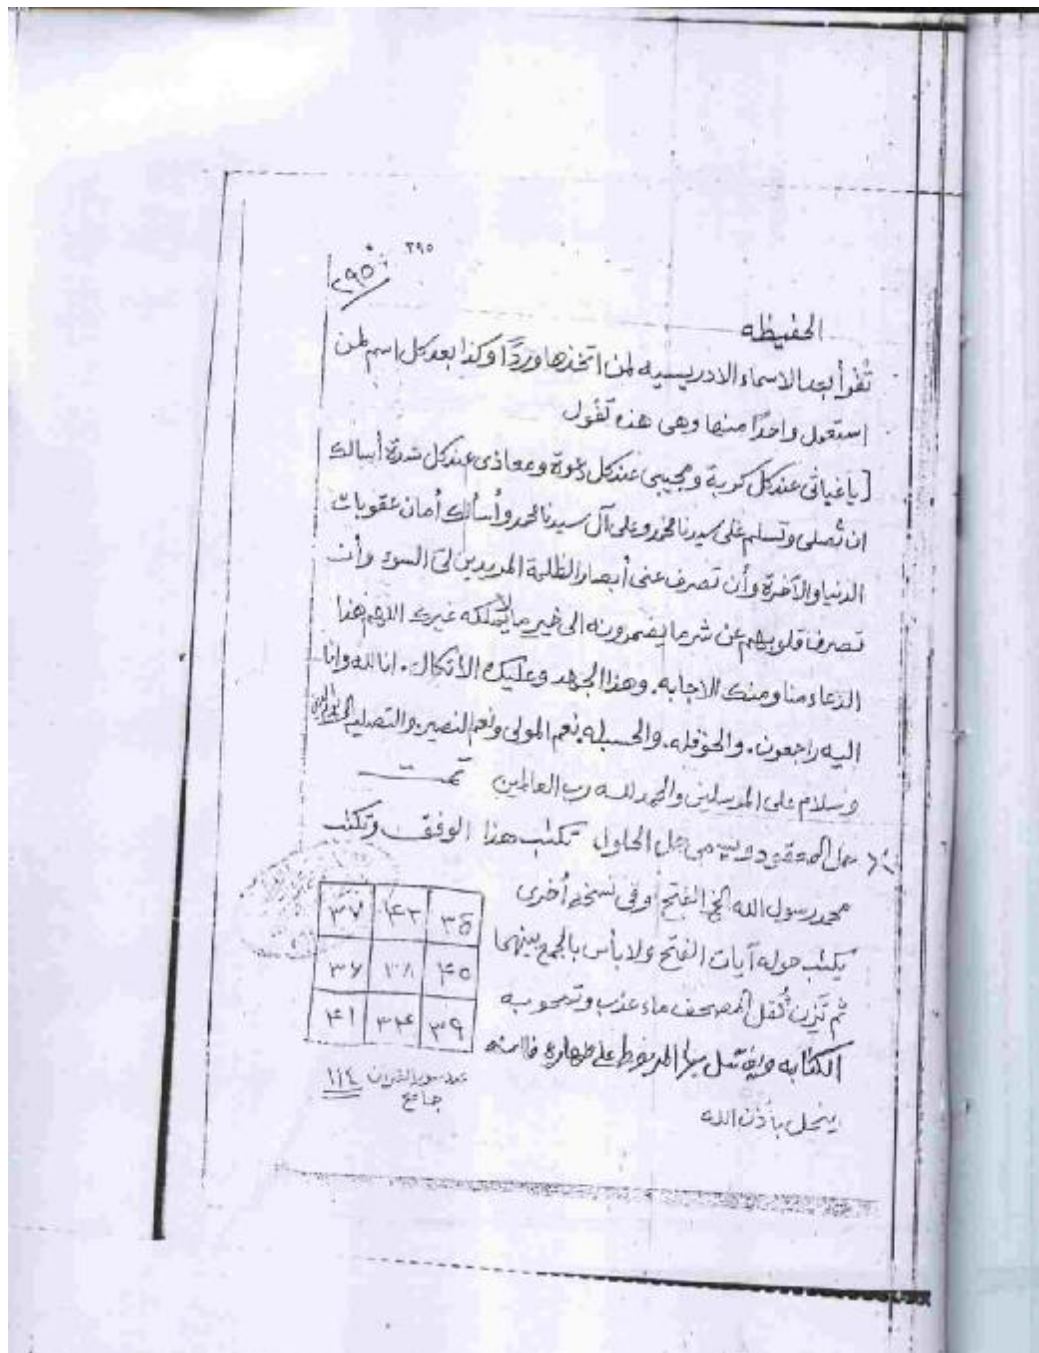 ٢٩٥
٢٩٥
الحفيظه
تُقرأ بعد الاسماء الادريسيه لمن اتخذها وردًا وكذا بعد كل اسم لمن
استعمل واحدًا منها وهى هذه تقول
[ياغياثى عند كل كربة ومجيبى عند كل دعوة ومعاذى عند كل شدة أسالك
ان تُصلى وتسلم على سيدنا محمد وعلى آل سيدنا محمد وأسألك أمان عقوبات
الدنيا والآخرة وأن تصرف عنى أبصار الظلمة المريدين لى السوء وأن
تصرف قلوبهم عن شر ما يضمرونه الى خير ما لا يملكه غيرك اللهم هذا
الدعاء منا ومنك الاجابه. وهذا الجهد وعليك الاتكال. انا لله وانا
اليه راجعون. والحوقله. والحسبله. نعم المولى ونعم النصير. والتصليه
وسلام على المرسلين والحمد لله رب العالمين تمت
حل المعقود تكتب هذا الوفق وتكتب
محمد رسول الله الخ الفتح أوفى نسخه أخرى
يكتب حوله آيات الفتح ولا بأس بالجمع بينهما
ثم تَزن ثُقل المصحف ماء عذب وتمحو به
الكتابه ويغتسل بها المربوط على طهاره فانه
ينحل بأذن الله
٣٧ ٤٢ ٣٥
٣٦ ٣٨ ٤٠
٤١ ٣٤ ٣٩
عدد سور القرآن ١١٤
جامع